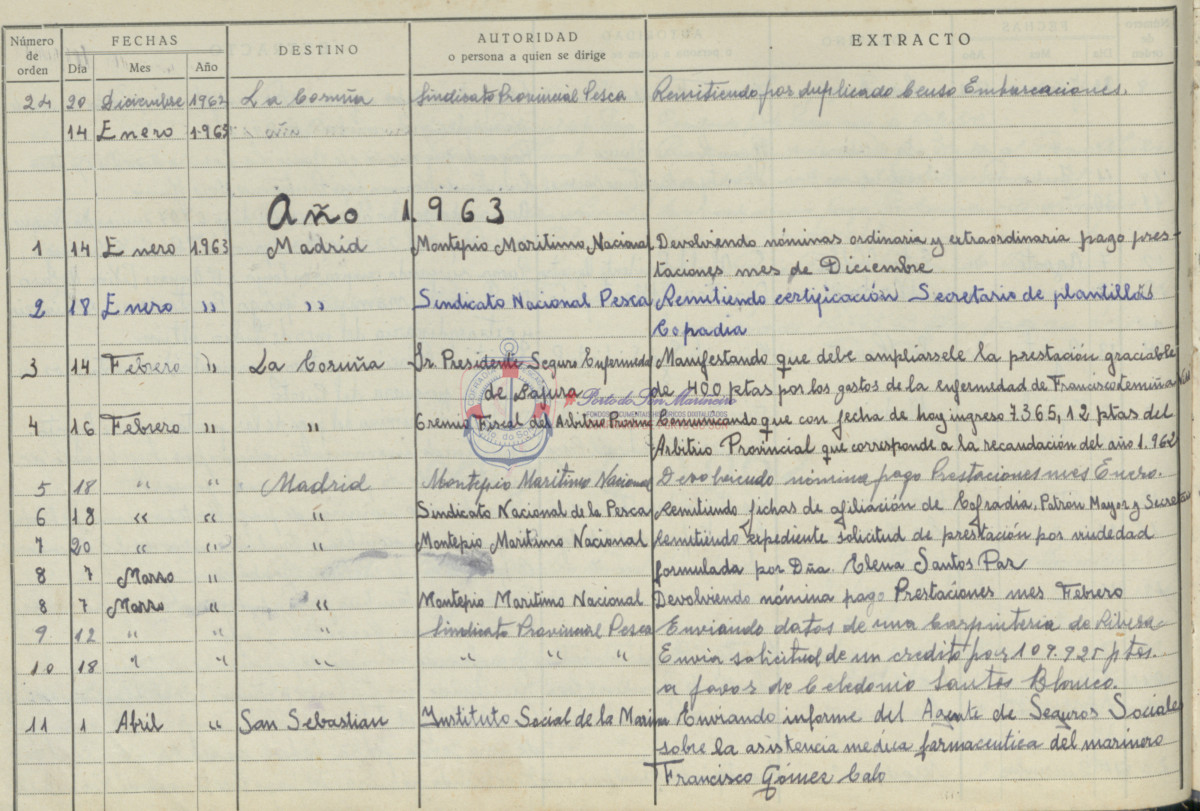 Número de orden FECHAS DESTINO AUTORIDAD o persona a quien se dirige EXTRACTO
Día Mes Año
24 20 Diciembre 1962 La Coruña Sindicato Provincial Pesca Remitiendo por duplicado Censo Embarcaciones.
14 Enero 1.963 año
Año 1.963
1 14 Enero 1.963 Madrid Montepio Maritimo Nacional Devolviendo nóminas ordinaria y extraordinaria pago pres-
taciones mes de Diciembre
2 18 Enero " " Sindicato Nacional Pesca Remitiendo certificación Secretario de plantillas
Copadia
3 14 Febrero " La Coruña Sr. Presidente Seguro Enfermeda Manifestando que debe ampliarsele la prestación graciable
de Sajura de 400 ptas por los gastos de la enfermedad de Francisco
Porto do Son Marineiro
FONDOS DOCUMENTAIS HISTÓRICOS DIXITALIZADOS
4 16 Febrero " " Gremio Fiscal del Arbitrio Provin Comunicando que con fecha de hoy ingreso 7.365,12 ptas del
Arbitrio Provincial que corresponde a la recaudación del año 1.962
5 18 " " Madrid Montepio Maritimo Nacional Devolviendo nómina pago Prestaciones mes Enero.
6 18 " " " Sindicato Nacional de la Pesca Remitiendo fichas de afiliación de Cofradia, Patrón Mayor y Secre
7 20 " " " Montepio Maritimo Nacional Remitiendo expediente solicitud de prestación por viudedad
8 7 Marso " formulada por Dña. Elena Santos Par
8 7 Marso " " Montepio Maritimo Nacional Devolviendo nómina pago Prestaciones mes Febrero
9 12 " " " Sindicato Provincial Pesca Enviando datos de una Carpinteria de Ribera
10 18 " " " " " " Envia solicitud de un credito por 109.925 ptas.
a favor de Celedonio Santos Blanco.
11 1 Abril " San Sebastian Instituto Social de la Marina Enviando informe del Agente de Seguros Sociales
sobre la asistencia medica farmaceutica del marinero
Francisco Gómez Calo